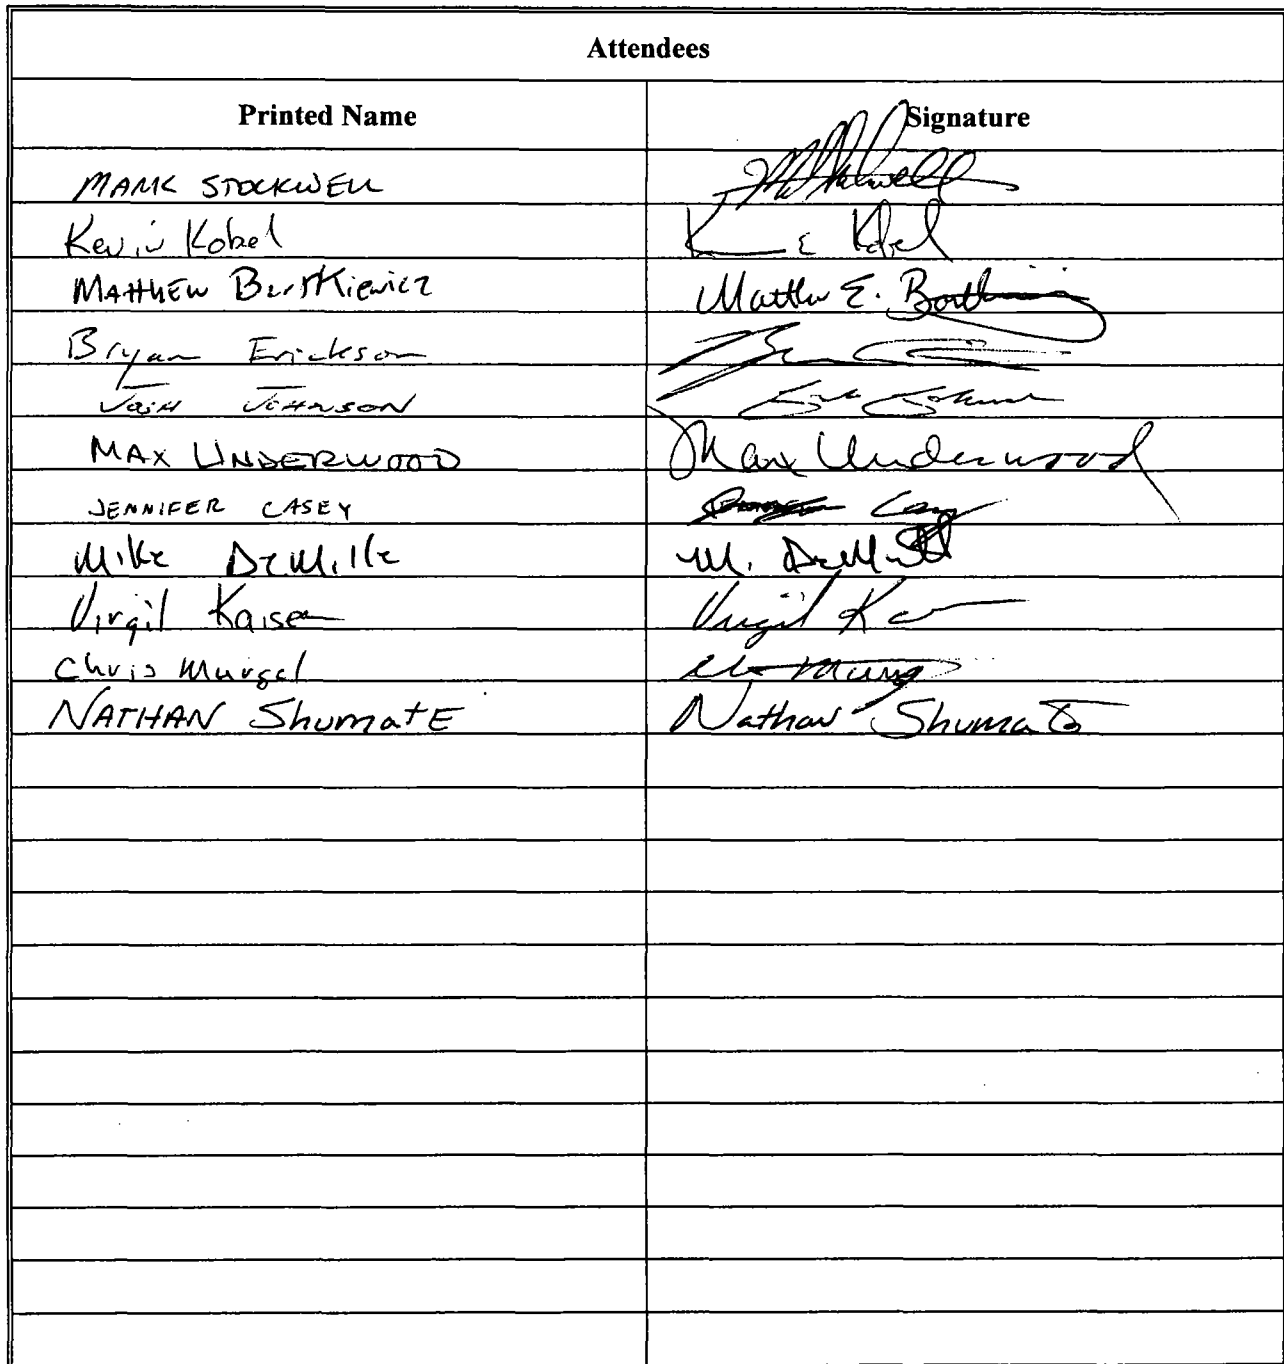 Attendees
Printed Name Signature
MARK STOCKWELL
Kevin Kobel K E Kobel
MATTHEW BartKiewicz Matthew E. 
Bryan Erickson
JOSH JOHNSON
MAX UNDERWOOD Max Underwood
JENNIFER CASEY
Mike DeMille M. DeMille
Virgil Kaiser Virgil K
Chris Mursel
NATHAN ShumatE Nathan Shumate